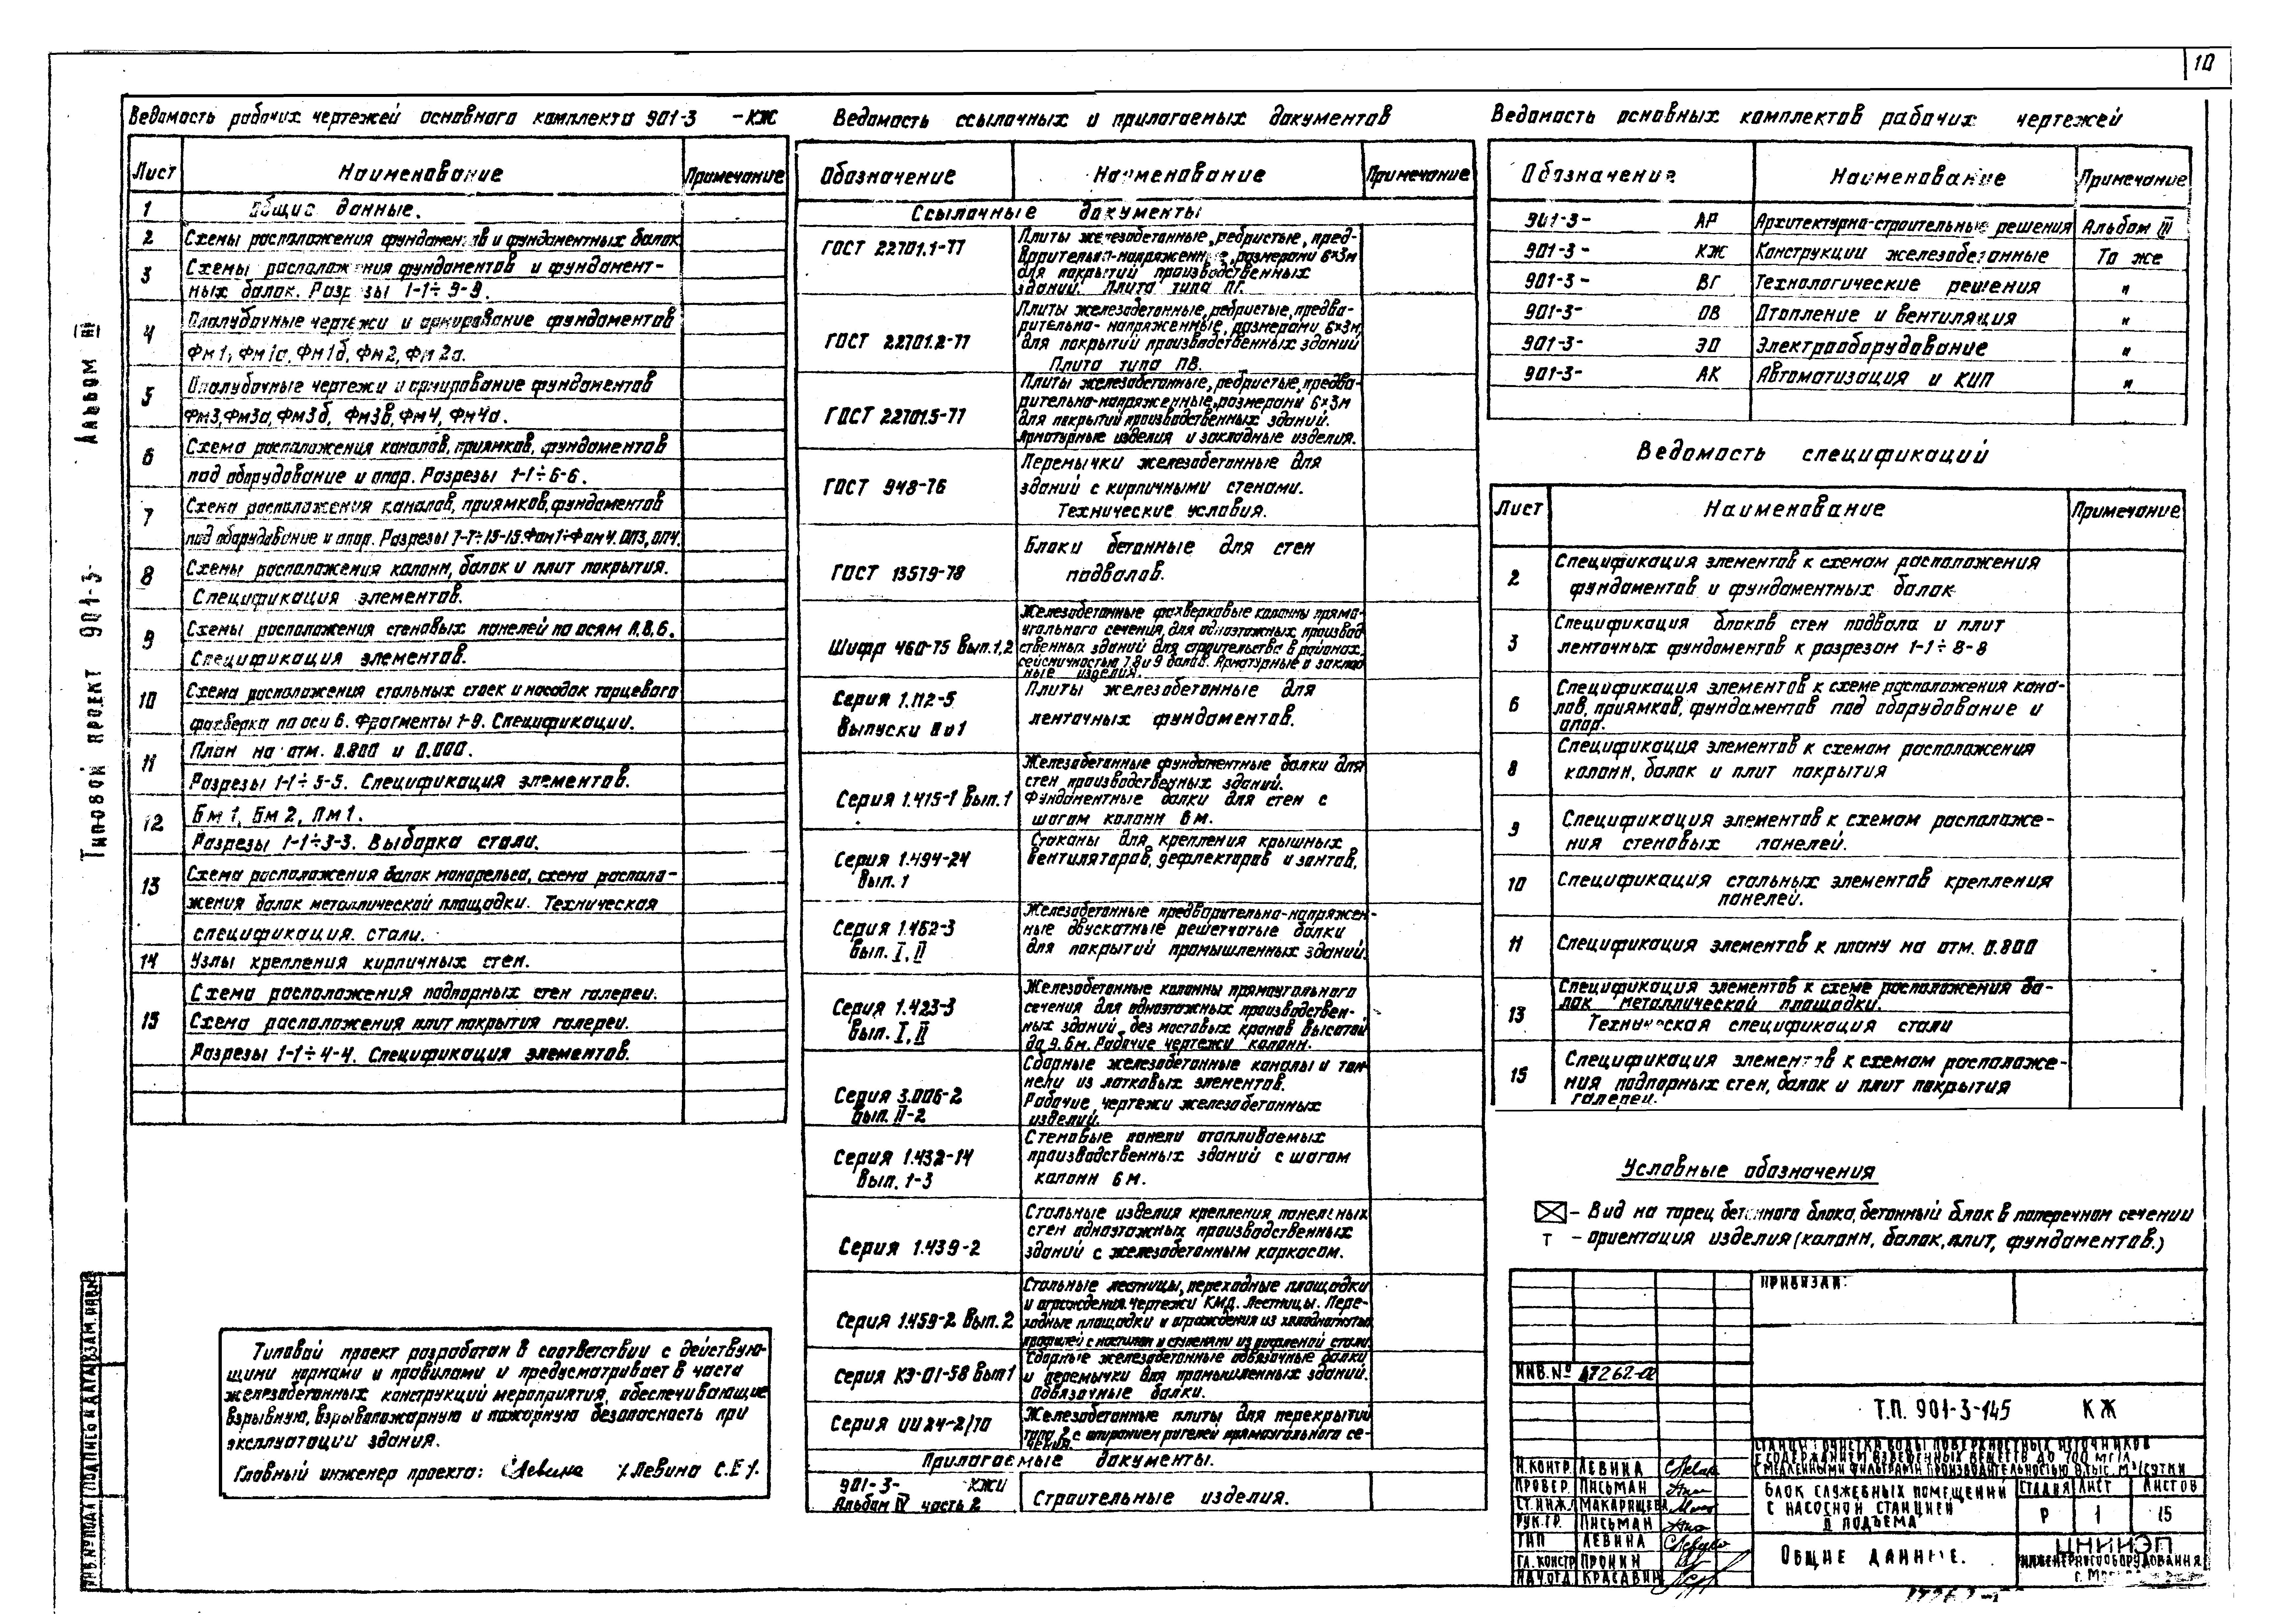 10
Альбом III
Типовой проект 901-3-
Ведомость рабочих чертежей основного комплекта 901-3 -КЖ
Лист Наименование Примечание
1 Общие данные.
2 Схемы расположения фундаментов и фундаментных балок
3 Схемы расположения фундаментов и фундамент-
ных балок. Разрезы 1-1÷9-9.
4 Опалубочные чертежи и армирование фундаментов
Фм1, Фм1а, Фм1б, Фм2, Фм2а.
5 Опалубочные чертежи и армирование фундаментов
Фм3, Фм3а, Фм3б, Фм3в, Фм4, Фм4а.
6 Схема расположения каналов, приямков, фундаментов
под оборудование и опор. Разрезы 1-1÷6-6.
7 Схема расположения каналов, приямков, фундаментов
под оборудование и опор. Разрезы 7-7÷15-15. Фом1÷Фом4. ОП3, ОП4.
8 Схемы расположения колонн, балок и плит покрытия.
Спецификация элементов.
9 Схемы расположения стеновых панелей по осям А, В, 6.
Спецификация элементов.
10 Схема расположения стальных стоек и насадок торцевого
фахверка по оси 6. Фрагменты 1-9. Спецификации.
11 План на отм. 0.800 и 0.000.
Разрезы 1-1÷5-5. Спецификация элементов.
12 Бм 1, Бм 2, Пм 1.
Разрезы 1-1÷3-3. Выборка стали.
13 Схема расположения балок монорельса, схема располо-
жения балок металлической площадки. Техническая
спецификация стали.
14 Узлы крепления кирпичных стен.
Схема расположения подпорных стен галереи.
15 Схема расположения плит покрытия галереи.
Разрезы 1-1÷4-4. Спецификация элементов.
Типовой проект разработан в соответствии с действую-
щими нормами и правилами и предусматривает в части
железобетонных конструкций мероприятия, обеспечивающие
взрывную, взрывопожарную и пожарную безопасность при
эксплуатации здания.
Главный инженер проекта: /Левина С.Е./.
Ведомость ссылочных и прилагаемых документов
Обозначение Наименование Примечание
Ссылочные документы
ГОСТ 22701.1-77 Плиты железобетонные, ребристые, пред-
варительно-напряженные, размерами 6×3м
для покрытий производственных
зданий. Плита типа ПГ.
ГОСТ 22701.2-77 Плиты железобетонные, ребристые, предва-
рительно-напряженные, размерами 6×3м,
для покрытий производственных зданий
Плита типа ПВ.
ГОСТ 22701.5-77 Плиты железобетонные, ребристые, предва-
рительно-напряженные, размерами 6×3м
для покрытий производственных зданий.
Арматурные изделия и закладные изделия.
ГОСТ 948-76 Перемычки железобетонные для
зданий с кирпичными стенами.
Технические условия.
ГОСТ 13579-78 Блоки бетонные для стен
подвалов.
Шифр 460-75 Вып. 1,2 Железобетонные фахверковые колонны прямо-
угольного сечения, для одноэтажных производ
ственных зданий для строительства в районах
сейсмичностью 7,8 и 9 балов. Арматурные и заклад
ные изделия.
Серия 1.112-5
Выпуски 0 и 1 Плиты железобетонные для
ленточных фундаментов.
Серия 1.415-1 вып. 1 Железобетонные фундаментные балки для
стен производственных зданий.
Фундаментные балки для стен с
шагом колонн 6 м.
Серия 1.494-24
Вып. 1 Стаканы для крепления крышных
вентиляторов, дефлекторов и зонтов.
Серия 1.462-3
Вып. I, II Железобетонные предварительно-напряжен-
ные двускатные решетчатые балки
для покрытий промышленных зданий.
Серия 1.423-3
Вып. I, II Железобетонные колонны прямоугольного
сечения для одноэтажных производствен-
ных зданий без мостовых кранов высотой
до 9.6м. Рабочие чертежи колонн.
Серия 3.006-2
Вып. II-2 Сборные железобетонные каналы и тон-
нели из лотковых элементов.
Рабочие чертежи железобетонных
изделий.
Серия 1.432-14
Вып. 1-3 Стеновые панели отапливаемых
производственных зданий с шагом
колонн 6 м.
Серия 1.439-2 Стальные изделия крепления панельных
стен одноэтажных производственных
зданий с железобетонным каркасом.
Серия 1.459-2 Вып. 2 Стальные лестницы, переходные площадки
и ограждения. Чертежи КМД. Лестницы. Пере-
ходные площадки и ограждения из холодногнутых
профилей с настилом и ступенями из рифленой стали.
Серия КЭ-01-58 Вып 1 Сборные железобетонные обвязочные балки
и перемычки для промышленных зданий.
Обвязочные балки.
Серия ИИ24-2/70 Железобетонные плиты для перекрытий
типа 2 с опиранием ригелей прямоугольного се-
чения.
Прилагаемые документы.
901-3- КЖИ
Альбом IV часть 2 Строительные изделия.
Ведомость основных комплектов рабочих чертежей
Обозначение Наименование Примечание
901-3- АР Архитектурно-строительные решения Альбом III
901-3- КЖ Конструкции железобетонные То же
901-3- ВГ Технологические решения "
901-3- ОВ Отопление и вентиляция "
901-3- ЭО Электрооборудование "
901-3- АК Автоматизация и КИП "
Ведомость спецификаций
Лист Наименование Примечание
2 Спецификация элементов к схемам расположения
фундаментов и фундаментных балок
3 Спецификация блоков стен подвала и плит
ленточных фундаментов к разрезам 1-1÷8-8
6 Спецификация элементов к схеме расположения кана-
лов, приямков, фундаментов под оборудование и
опор.
8 Спецификация элементов к схемам расположения
колонн, балок и плит покрытия
9 Спецификация элементов к схемам расположе-
ния стеновых панелей.
10 Спецификация стальных элементов крепления
панелей.
11 Спецификация элементов к плану на отм. 0.800
13 Спецификация элементов к схеме расположения ба-
лок металлической площадки.
Техническая спецификация стали
15 Спецификация элементов к схемам расположе-
ния подпорных стен, балок и плит покрытия
галереи.
Условные обозначения
– Вид на торец бетонного блока, бетонный блок в поперечном сечении
т – ориентация изделия (колонн, балок, плит, фундаментов.)
Привязан:
Инв. № 17262-02
Т.П. 901-3-145 КЖ
Станция очистки воды поверхностных источников
с содержанием взвешенных веществ до 700 мг/л
с медленными фильтрами производительностью 8 тыс. м³/сутки
Н.контр. Левина
Провер. Письман
Ст.инж. Макарищева
Рук.гр. Письман
ГИП Левина
Гл.констр Пронин
Нач.отд Красавин
Блок служебных помещений
с насосной станцией
II подъема
Стадия Лист Листов
Р 1 15
Общие данные.
ЦНИИЭП
инженерного оборудования
г. Москва
Инв. № подл Подпись и дата Взам. инв. №